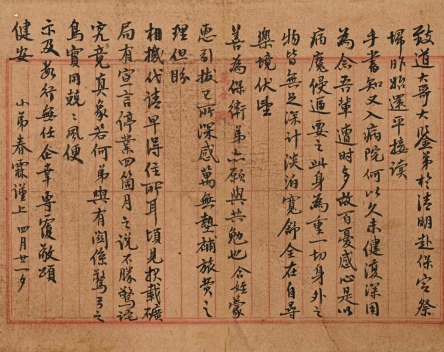 致道大哥大鉴弟於清明赴保定祭
埽昨始還平捧讀
手書知又入病院何以久未健復深用
為念吾輩遭時多故百憂感心是以
病魔侵逼要之此身為重一切身外之
物皆無足深計淡泊寬餘全在自尋
樂境伏惟
善為保衛弟亦願與共勉也令姪蒙
惠引拔已所深感萬無墊補旅費之
理但盼
相機代請早得住所耳頃見報載礦
局有宣言停業四箇月之說不勝驚詫
究竟真象若何弟與有關係驚弓之
鳥實用兢兢風便
示及為行無任企幸專覆敬頌
健安
小弟春霖謹上 四月廿一夕